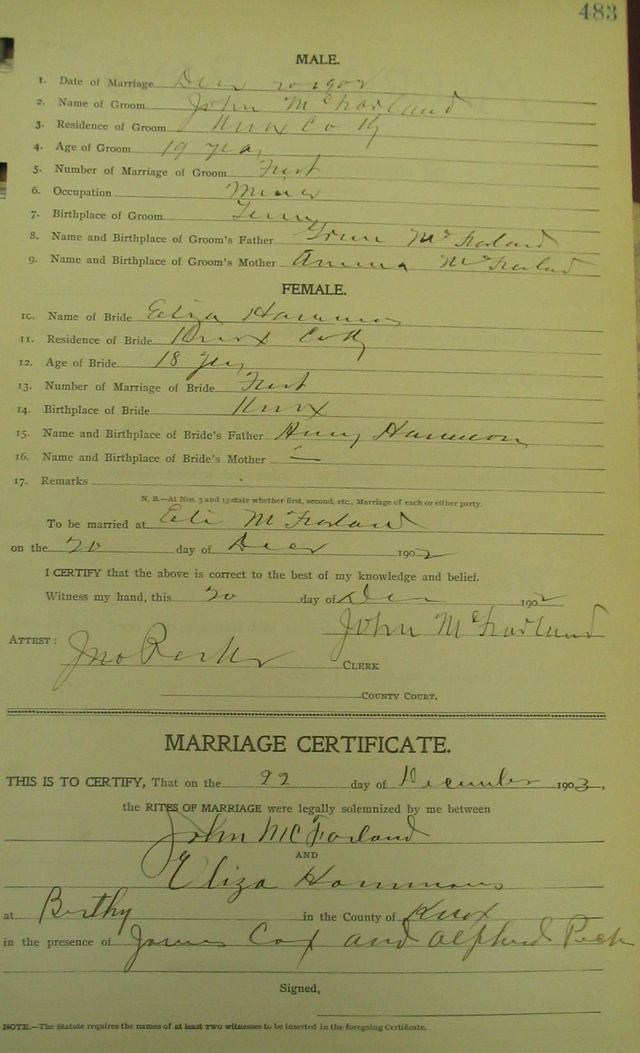 483
MALE.
1. Date of Marriage
2. Name of Groom John McFarland
3. Residence of Groom Knox Co Ky
4. Age of Groom 19 years
5. Number of Marriage of Groom First
6. Occupation Miner
7. Birthplace of Groom Tenn
8. Name and Birthplace of Groom's Father McFarland
9. Name and Birthplace of Groom's Mother McFarland
FEMALE.
10. Name of Bride Eliza Hammons
11. Residence of Bride Knox Co Ky
12. Age of Bride 18 yrs
13. Number of Marriage of Bride First
14. Birthplace of Bride Knox
15. Name and Birthplace of Bride's Father Hammons
16. Name and Birthplace of Bride's Mother —
17. Remarks
N. B.—At Nos. 5 and 13 state whether first, second, etc., Marriage of each or either party.
To be married at Eli McFarland
on the 20 day of Decr 1902
I CERTIFY that the above is correct to the best of my knowledge and belief.
Witness my hand, this 20 day of Dec 1902
John McFarland
ATTEST: Jno CLERK
COUNTY COURT.
MARRIAGE CERTIFICATE.
THIS IS TO CERTIFY, That on the 22 day of December 1903,
the RITES OF MARRIAGE were legally solemnized by me between
John McFarland
AND
Eliza Hammons
at in the County of Knox
in the presence of James Cox and Peck
Signed,
NOTE.—The Statute requires the names of at least two witnesses to be inserted in the foregoing Certificate.